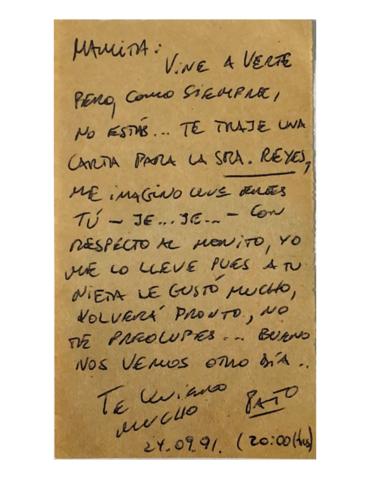 MAMITA:
VINE A VERTE
PERO, COMO SIEMPRE,
NO ESTÁS... TE TRAJE UNA
CARTA PARA LA SRA. REYES,
ME IMAGINO QUE ERES
TÚ - JE...JE... - CON
RESPECTO AL MONITO, YO
ME LO LLEVE PUES A TU
NIETA LE GUSTÓ MUCHO,
VOLVERÁ PRONTO, NO
TE PREOCUPES... BUENO
NOS VEMOS OTRO DÍA..
TE QUIERO
MUCHO PATO
24.09.91. (20:00 Hrs)